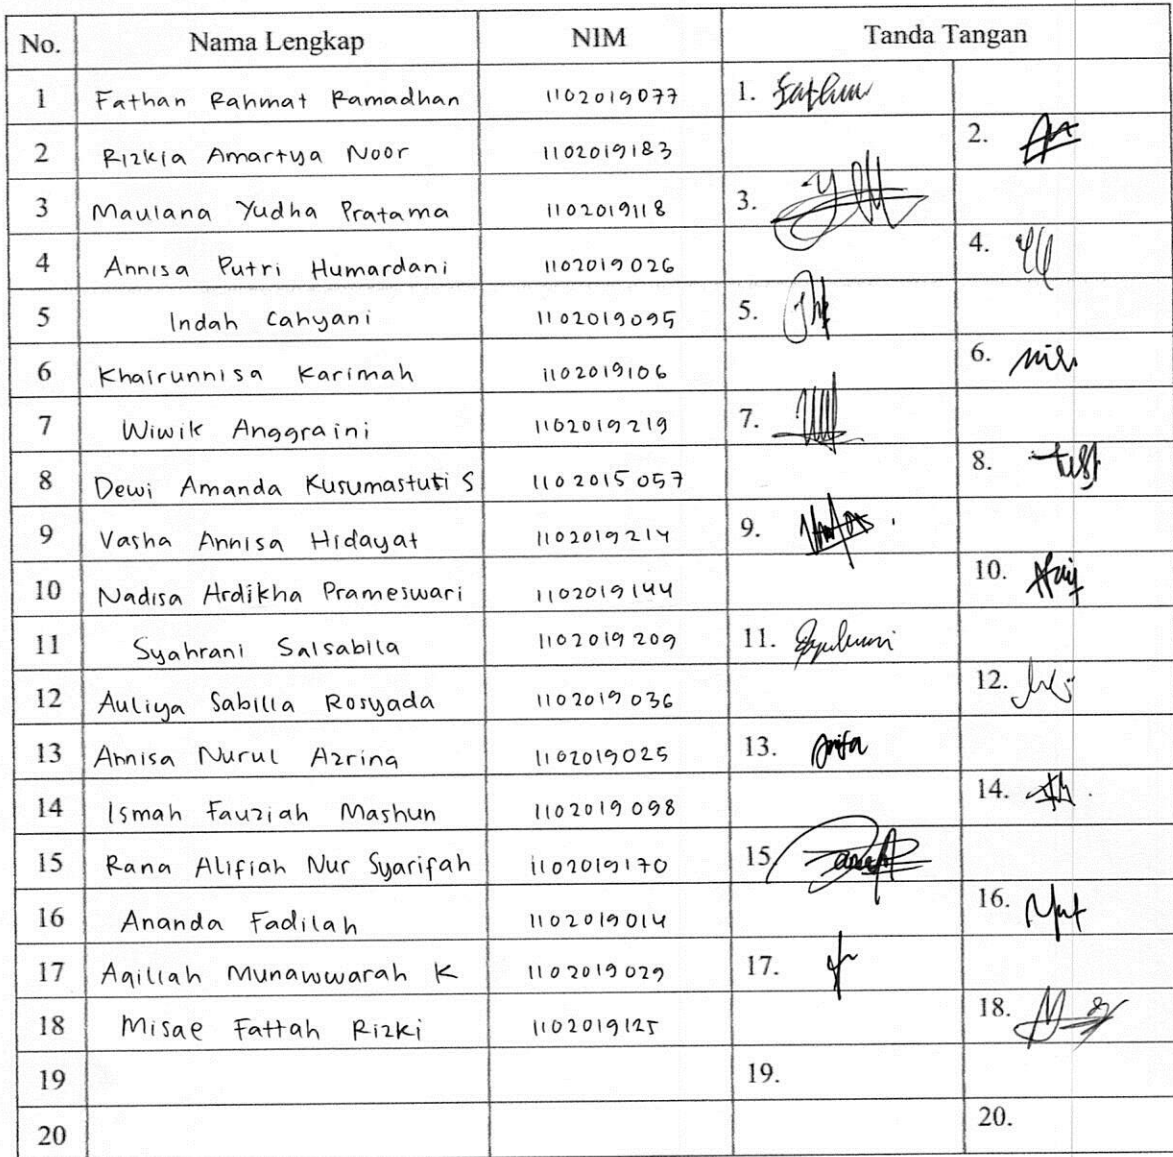 No. Nama Lengkap NIM Tanda Tangan
1 Fathan Rahmat Ramadhan 1102019077 1. Fathan
2 Rizkia Amartya Noor 1102019183 2.
3 Maulana Yudha Pratama 1102019118 3.
4 Annisa Putri Humardani 1102019026 4.
5 Indah Cahyani 1102019095 5.
6 Khairunnisa Karimah 1102019106 6.
7 Wiwik Anggraini 1102019219 7.
8 Dewi Amanda Kusumastuti S 1102015057 8.
9 Vasha Annisa Hidayat 1102019214 9.
10 Nadisa Ardikha Prameswari 1102019144 10.
11 Syahrani Salsabila 1102019209 11.
12 Auliya Sabilla Rosyada 1102019036 12.
13 Annisa Nurul Azrina 1102019025 13.
14 Ismah Fauziah Mashun 1102019098 14.
15 Rana Alifiah Nur Syarifah 1102019170 15.
16 Ananda Fadilah 1102019014 16.
17 Aqillah Munawwarah K 1102019029 17.
18 Misae Fattah Rizki 1102019125 18.
19 19.
20 20.